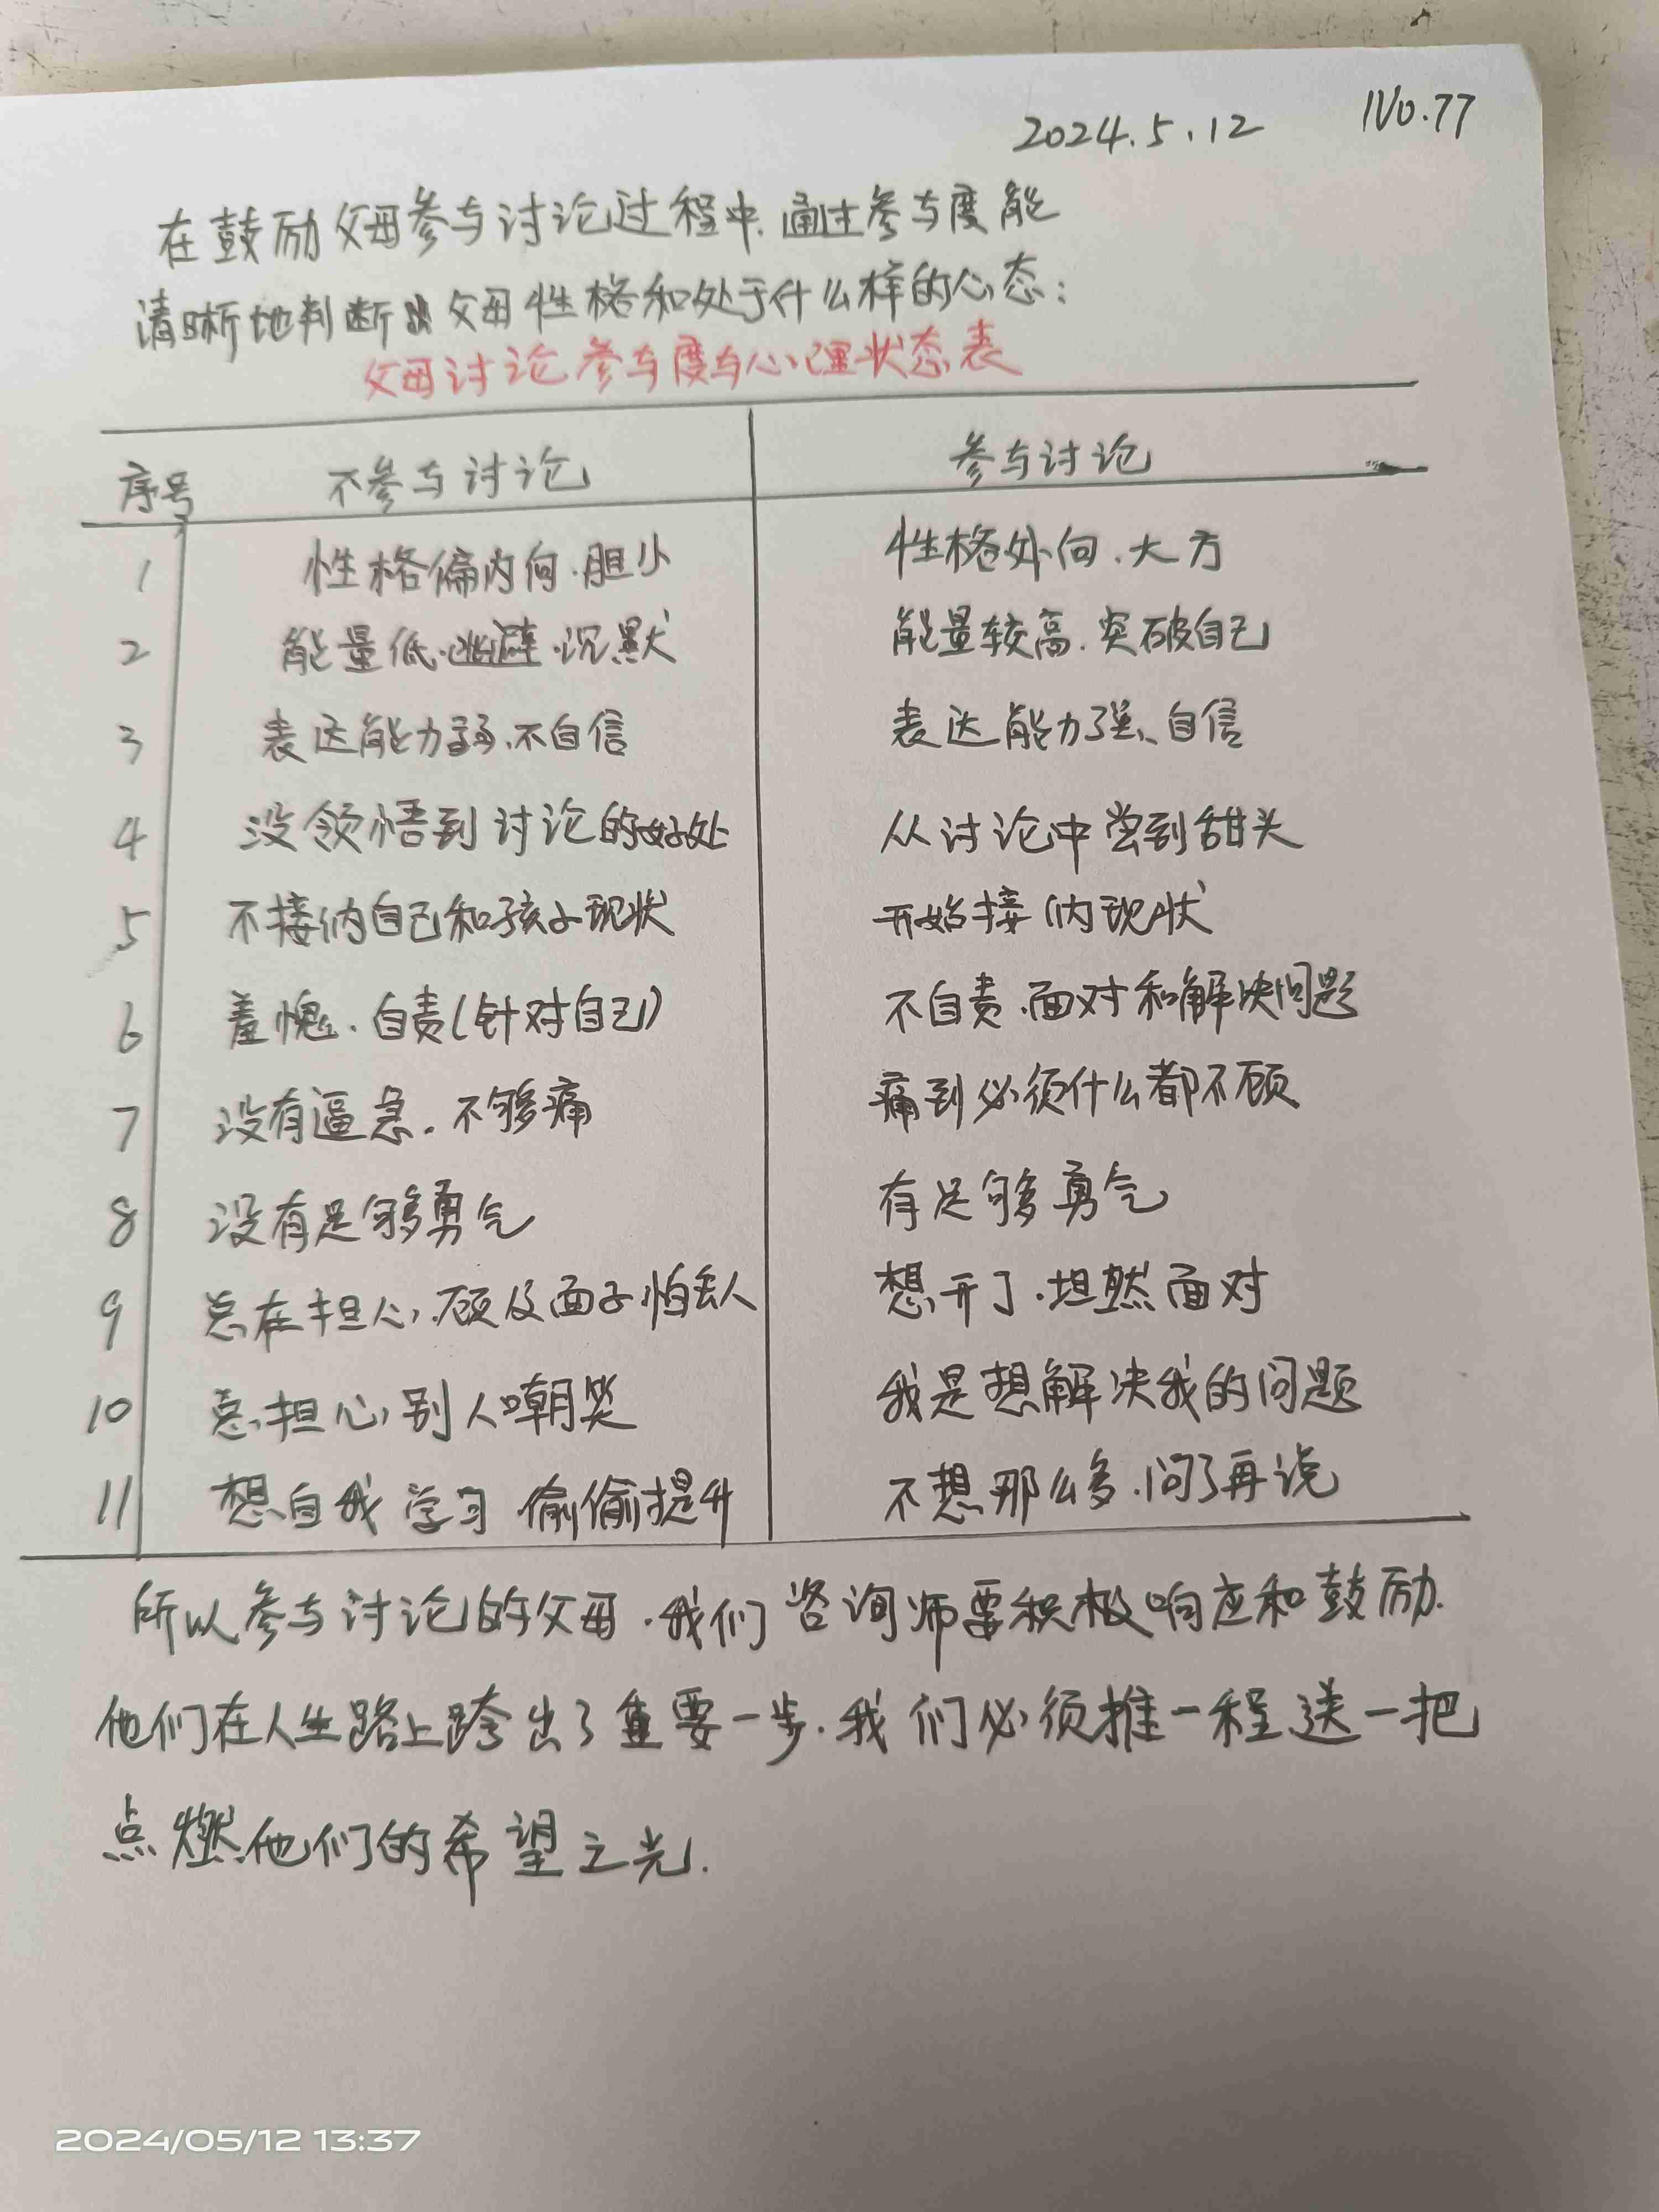 2024.5.12 No.77
在鼓励父母参与讨论过程中.通过参与度能
清晰地判断出父母性格和处于什么样的心态:
父母讨论参与度与心理状态表
序号 不参与讨论 参与讨论
1 性格偏内向.胆小 性格外向.大方
2 能量低.逃避.沉默 能量较高.突破自己
3 表达能力弱.不自信 表达能力强、自信
4 没领悟到讨论的好处 从讨论中尝到甜头
5 不接纳自己和孩子现状 开始接纳现状
6 羞愧.自责(针对自己) 不自责.面对和解决问题
7 没有逼急.不够痛 痛到必须什么都不顾
8 没有足够勇气 有足够勇气
9 总在担心.顾及面子怕丢人 想开了.坦然面对
10 总担心别人嘲笑 我是想解决我的问题
11 想自我学习.偷偷提升 不想那么多.问了再说
所以参与讨论的父母.我们咨询师要积极响应和鼓励.
他们在人生路上跨出了重要一步.我们必须推一程送一把
点燃他们的希望之光.
2024/05/12 13:37